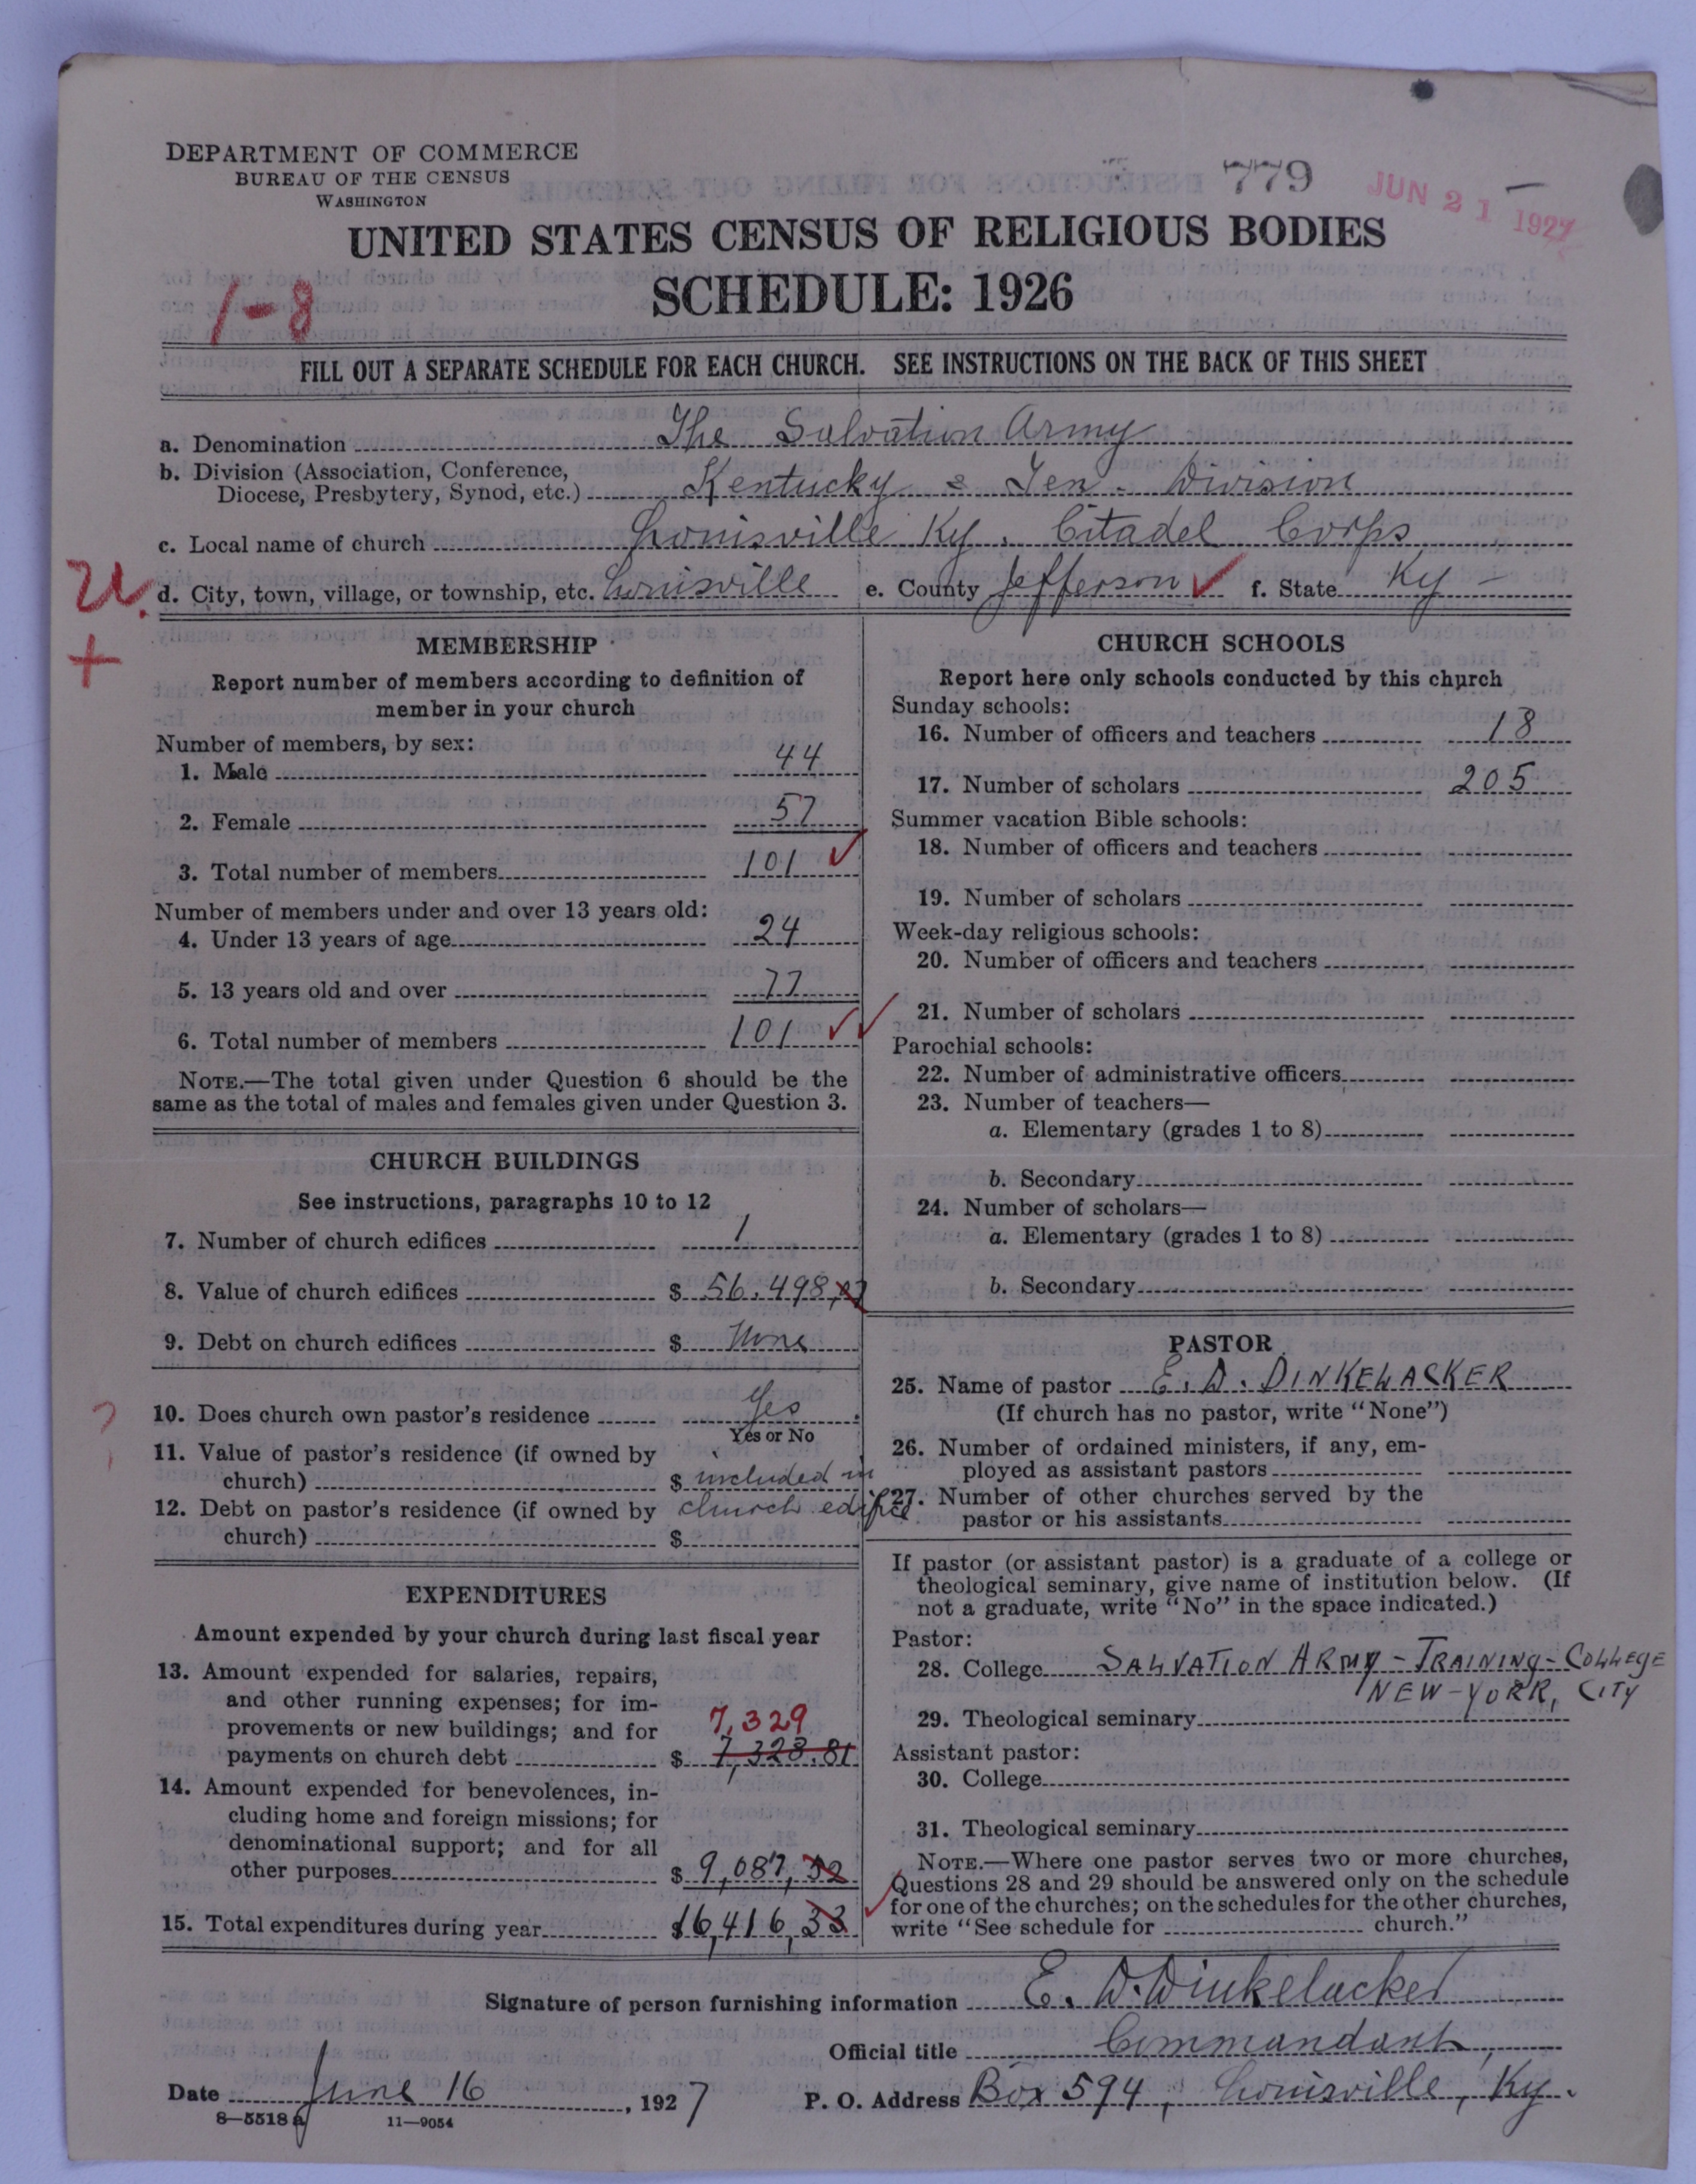 DEPARTMENT OF COMMERCE
BUREAU OF THE CENSUS
WASHINGTON
779
JUN 21 1927
UNITED STATES CENSUS OF RELIGIOUS BODIES
SCHEDULE: 1926
1-8
FILL OUT A SEPARATE SCHEDULE FOR EACH CHURCH. SEE INSTRUCTIONS ON THE BACK OF THIS SHEET
a. Denomination The Salvation Army
b. Division (Association, Conference,
Diocese, Presbytery, Synod, etc.) Kentucky & Ten. Division
c. Local name of church Louisville Ky. Citadel Corps
U.
d. City, town, village, or township, etc. Louisville e. County Jefferson ✓ f. State Ky -
+
MEMBERSHIP
Report number of members according to definition of
member in your church
Number of members, by sex:
1. Male 44
2. Female 57
3. Total number of members 101 ✓
Number of members under and over 13 years old:
4. Under 13 years of age 24
5. 13 years old and over 77
6. Total number of members 101 ✓✓
NOTE.—The total given under Question 6 should be the
same as the total of males and females given under Question 3.
CHURCH BUILDINGS
See instructions, paragraphs 10 to 12
7. Number of church edifices 1
8. Value of church edifices $ 56.498,
9. Debt on church edifices $ None
?
10. Does church own pastor's residence Yes
Yes or No
11. Value of pastor's residence (if owned by
church) $ included in
12. Debt on pastor's residence (if owned by church edifice
church) $
EXPENDITURES
Amount expended by your church during last fiscal year
13. Amount expended for salaries, repairs,
and other running expenses; for im-
provements or new buildings; and for 7,329
payments on church debt $ 7,328.81
14. Amount expended for benevolences, in-
cluding home and foreign missions; for
denominational support; and for all
other purposes $ 9,087,32
15. Total expenditures during year $16,416,33
CHURCH SCHOOLS
Report here only schools conducted by this church
Sunday schools:
16. Number of officers and teachers 18
17. Number of scholars 205
Summer vacation Bible schools:
18. Number of officers and teachers
19. Number of scholars
Week-day religious schools:
20. Number of officers and teachers
21. Number of scholars
Parochial schools:
22. Number of administrative officers
23. Number of teachers—
a. Elementary (grades 1 to 8)
b. Secondary
24. Number of scholars—
a. Elementary (grades 1 to 8)
b. Secondary
PASTOR
25. Name of pastor E. D. DINKELACKER
(If church has no pastor, write "None")
26. Number of ordained ministers, if any, em-
ployed as assistant pastors
27. Number of other churches served by the
pastor or his assistants
If pastor (or assistant pastor) is a graduate of a college or
theological seminary, give name of institution below. (If
not a graduate, write "No" in the space indicated.)
Pastor:
28. College SALVATION ARMY - TRAINING - COLLEGE
NEW-YORK, CITY
29. Theological seminary
Assistant pastor:
30. College
31. Theological seminary
NOTE.—Where one pastor serves two or more churches,
Questions 28 and 29 should be answered only on the schedule
✓ for one of the churches; on the schedules for the other churches,
write "See schedule for church."
Signature of person furnishing information E. D. Dinkelacker
Official title Commandant,
Date June 16, 1927 P. O. Address Box 594, Louisville, Ky.
8—5518a 11—9054